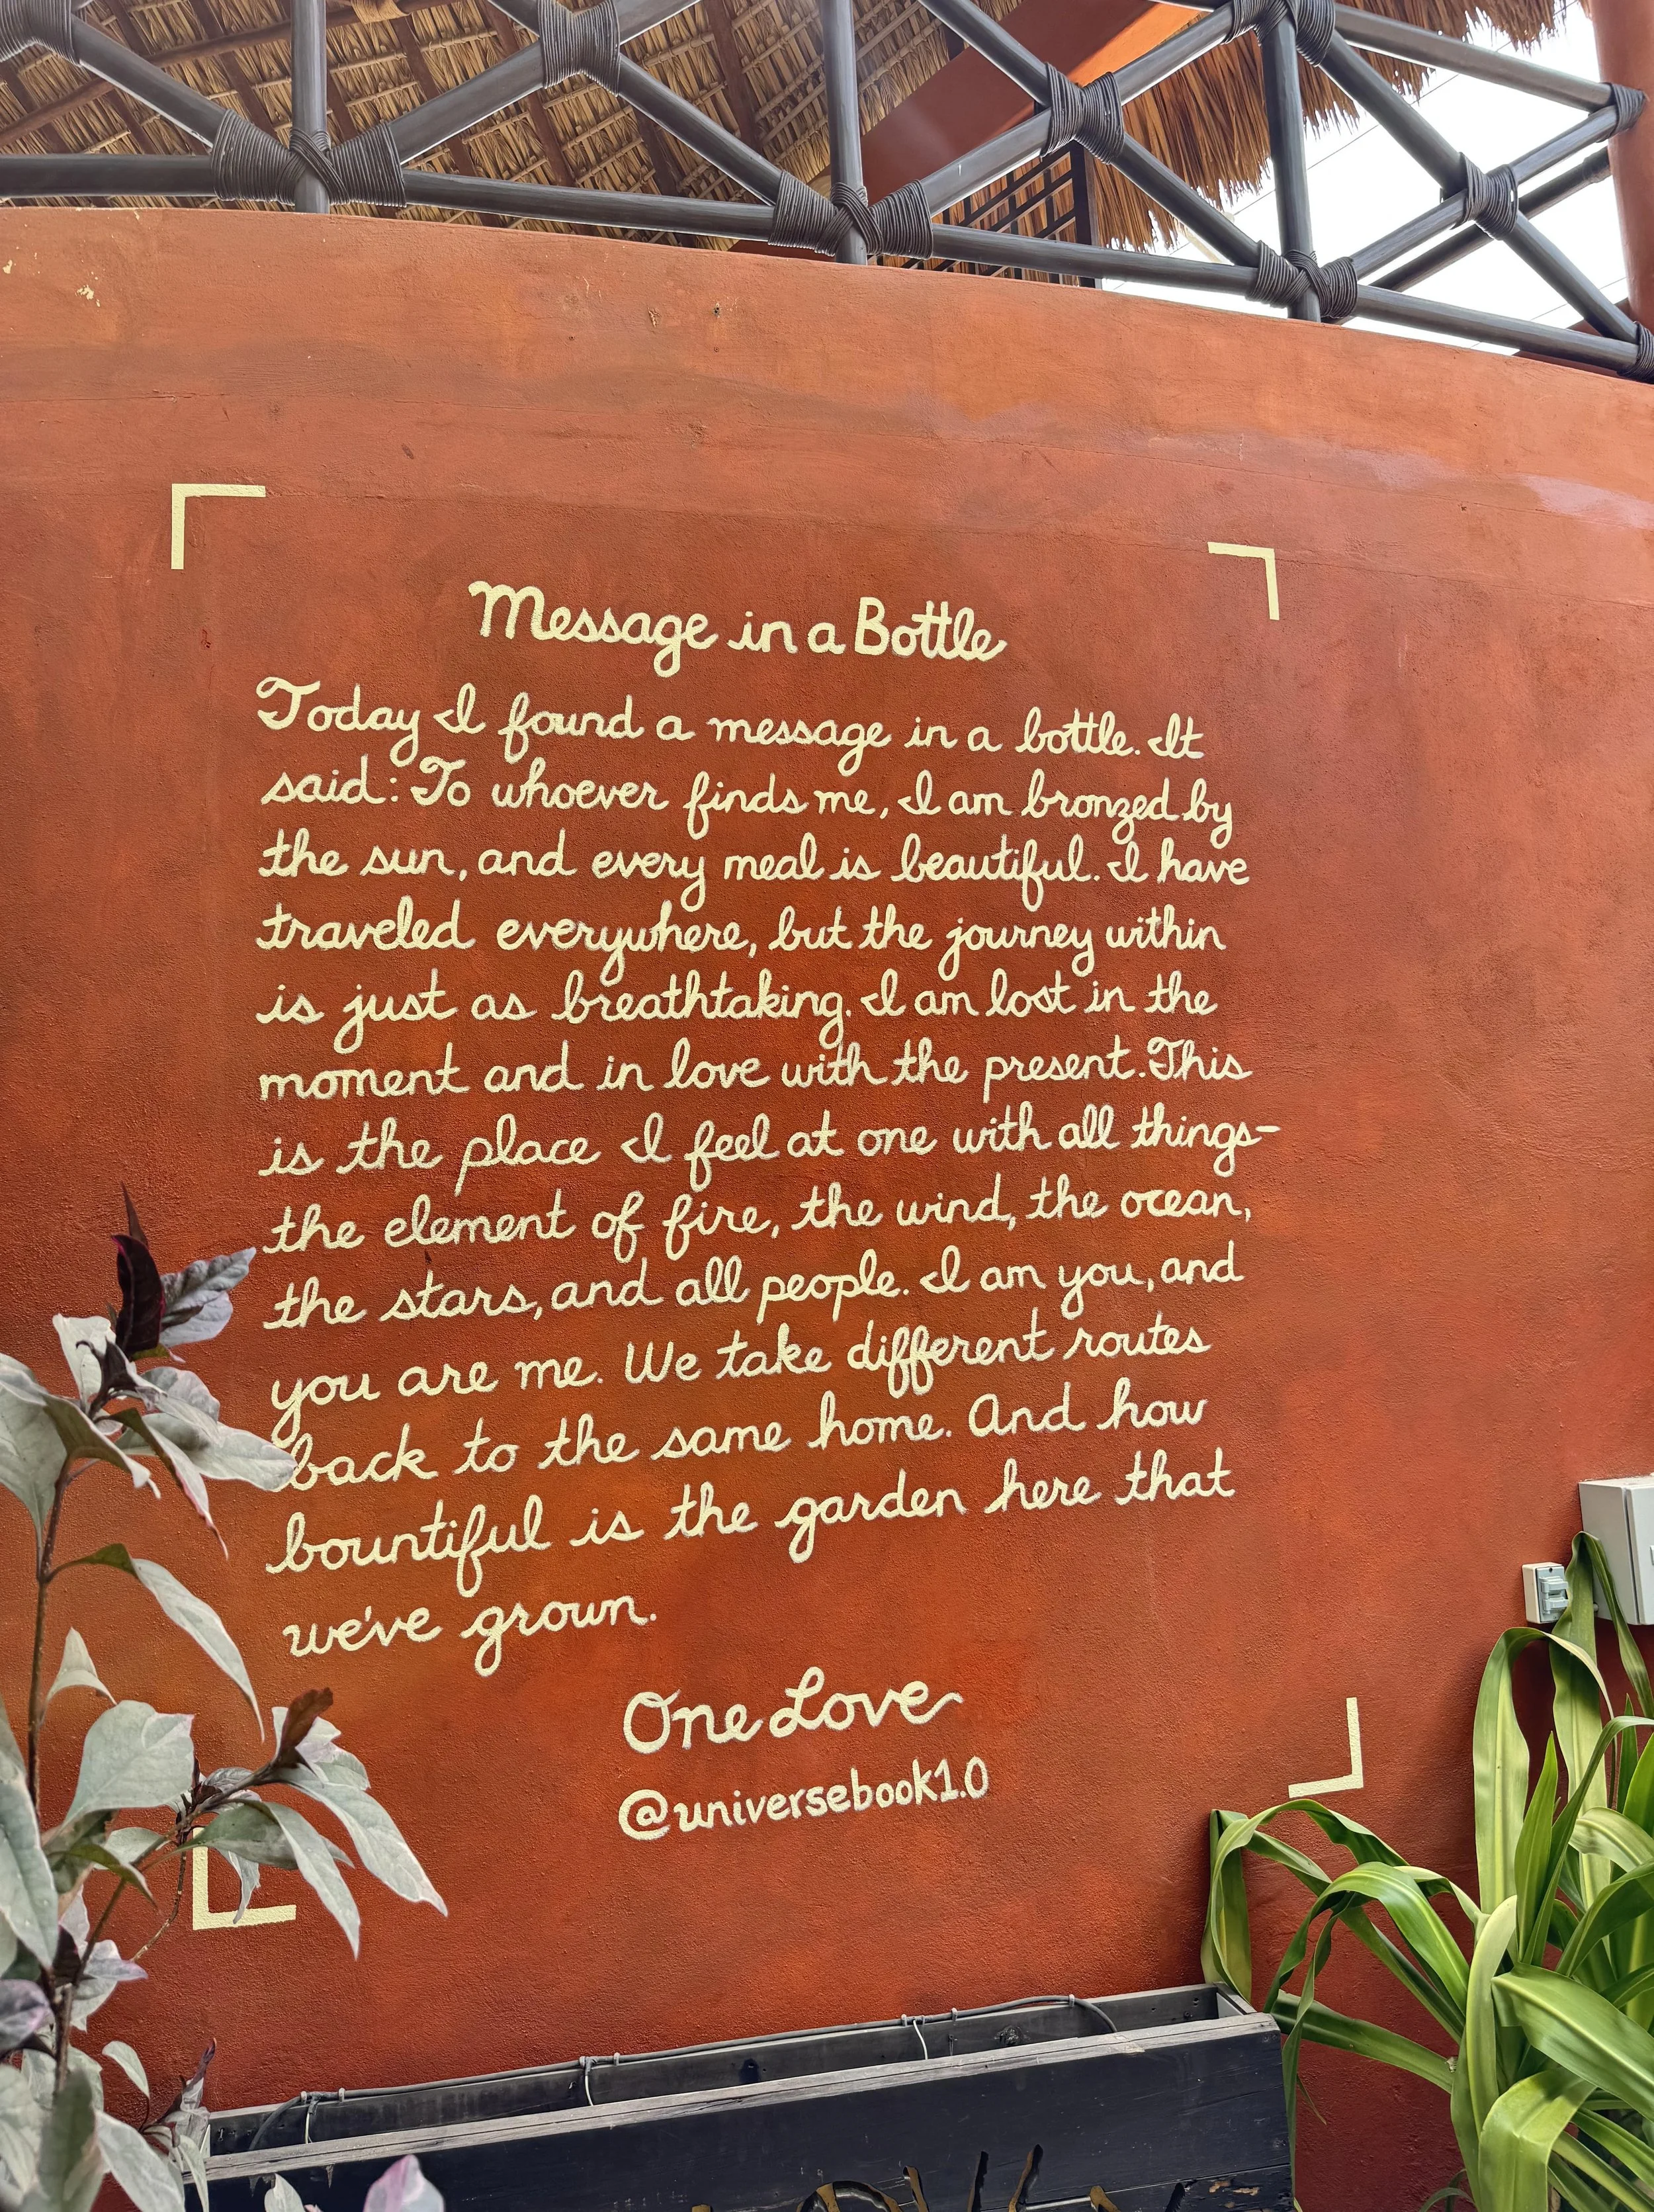 Message in a Bottle
Today I found a message in a bottle. It
said: To whoever finds me, I am bronzed by
the sun, and every meal is beautiful. I have
traveled everywhere, but the journey within
is just as breathtaking. I am lost in the
moment and in love with the present. This
is the place I feel at one with all things-
the element of fire, the wind, the ocean,
the stars, and all people. I am you, and
you are me. We take different routes
back to the same home. And how
bountiful is the garden here that
we've grown.
One Love
@universebook1.0